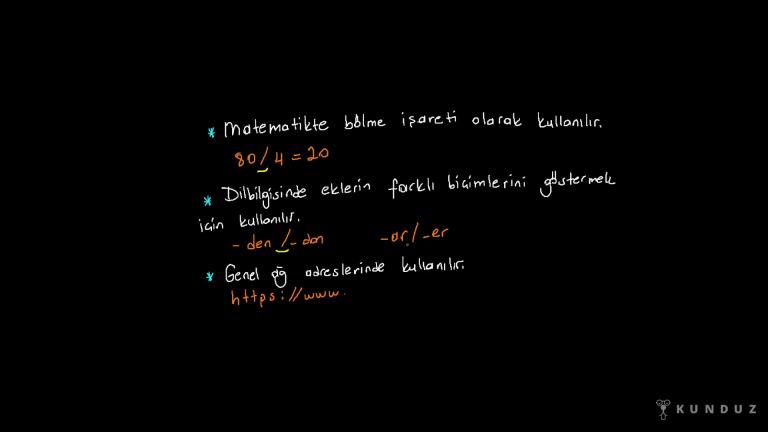 * Matematikte bölme işareti olarak kullanılır.
80/4 = 20
* Dilbilgisinde eklerin farklı biçimlerini göstermek
için kullanılır.
-den /-dan -ar/-er
* Genel ağ adreslerinde kullanılır.
https://www.
KUNDUZ